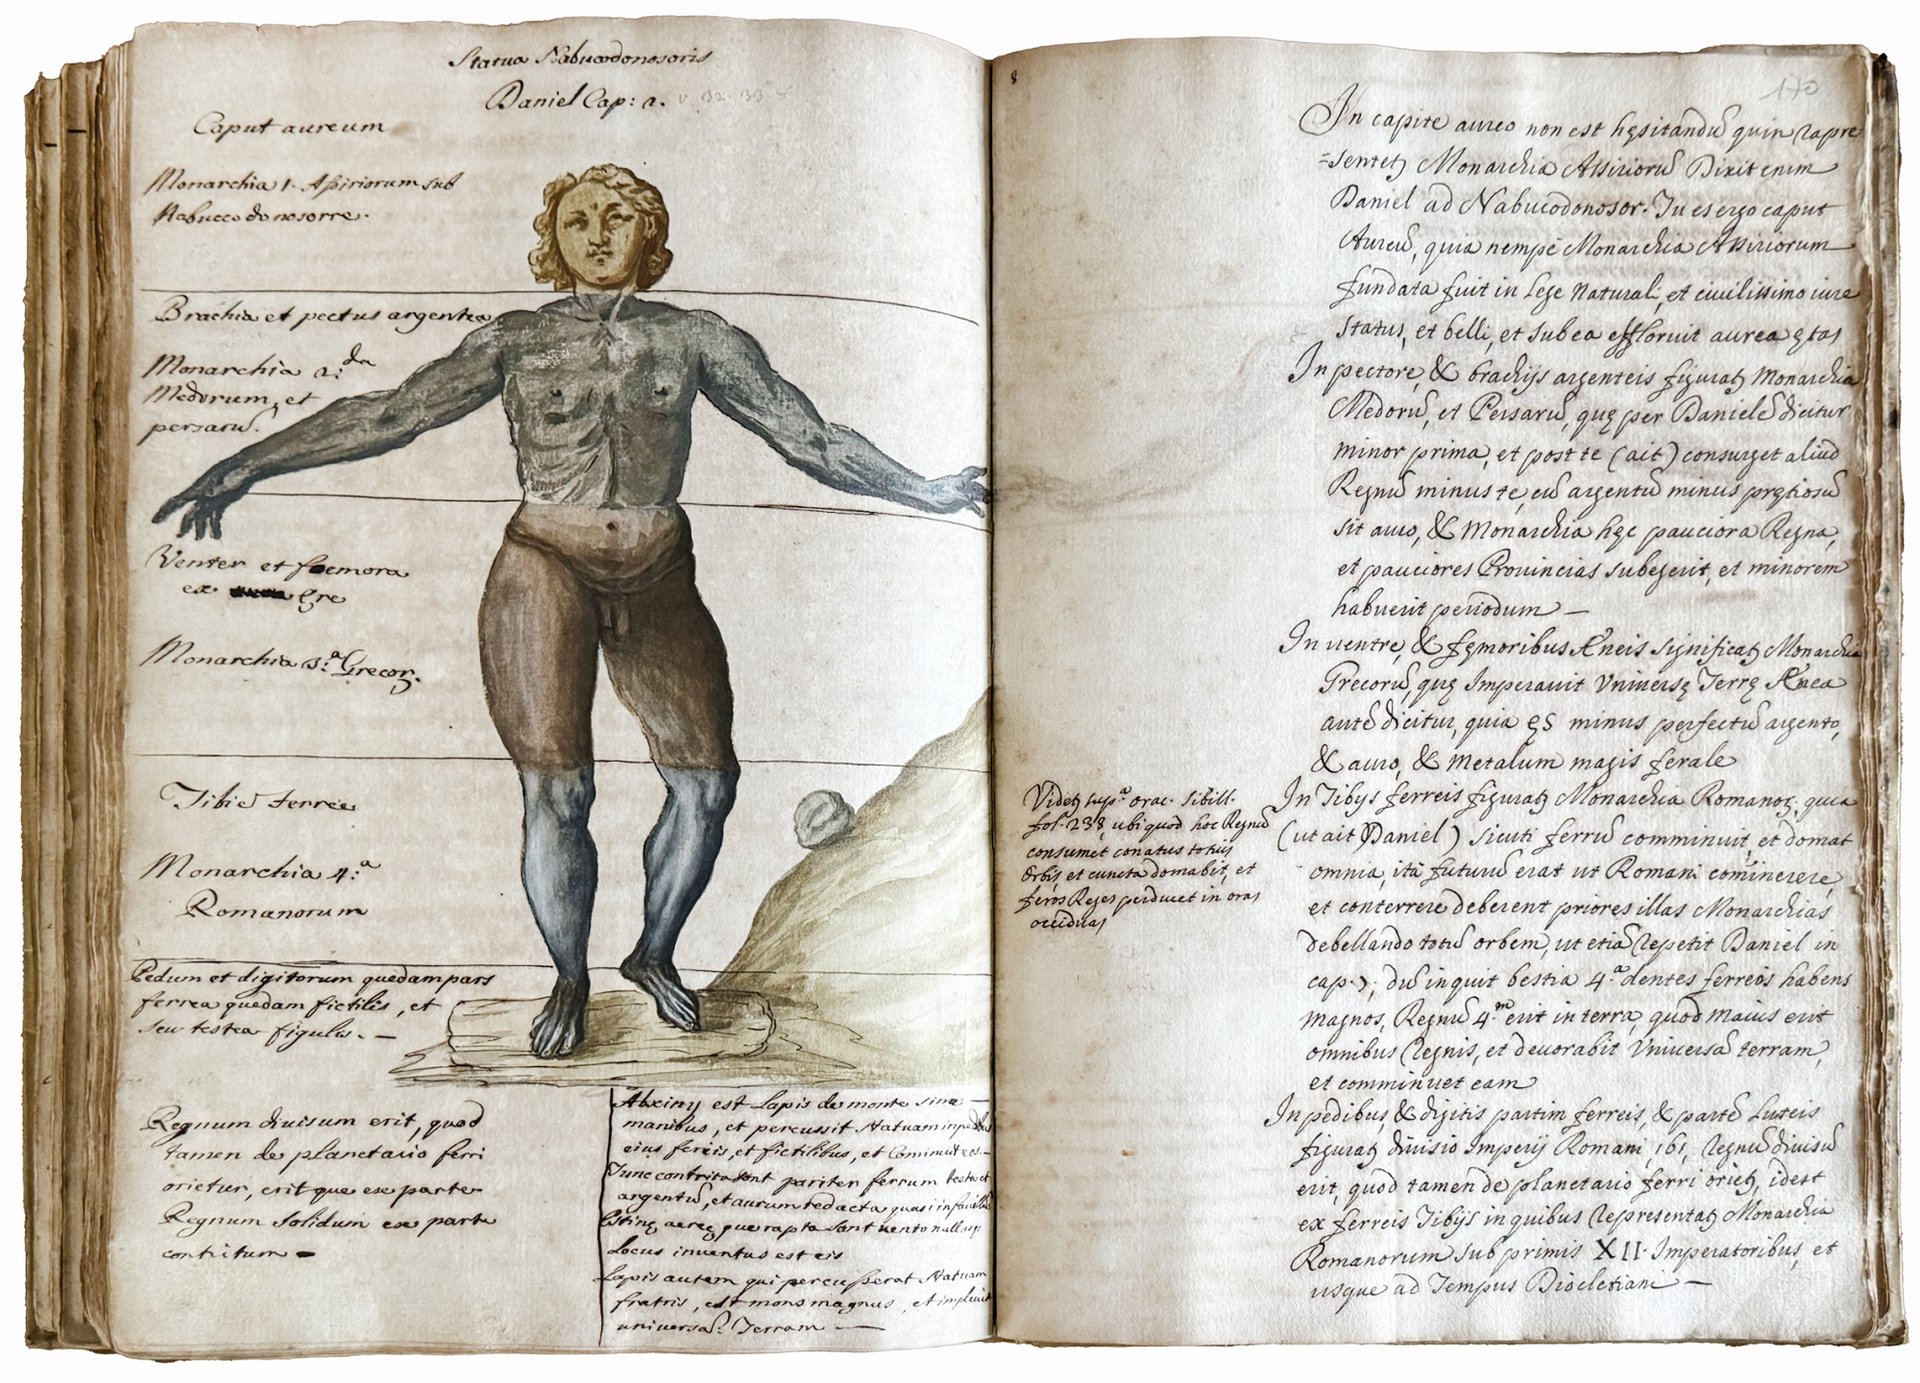 Statua Nabucodonosoris
Daniel Cap: 2. v. 32. 33
Caput aureum
Monarchia 1. Assiriorum sub
Nabuccodonosorre.
Brachia et pectus argentea
Monarchia 2:da
Medorum, et
persarũ.
Venter et foemora
ex Ere
Monarchia 3:a Grecoꝝ.
Tibie ferree
Monarchia 4:a
Romanorum
Pedum et digitorum quedam pars
ferrea quedam fictilis, et
seu testea figulis. —
Regnum diuisum erit, quod
tamen de planetario ferri
orietur, erit que ex parte
Regnum solidum ex parte
contritum —
Abscinsꝰ est Lapis de monte sine —
manibus, et percussit statuam in pedibus
eius ferreis, et fictilibus, et Cominuit eos. —
Tunc contrita sunt pariter ferrum testa et
argentũ, et aurum redacta quasi in fauillã
Estine aeree, que rapta sunt uento nullusqꝫ
Locus inuentus est eis
Lapis autem qui percusserat statuam
fratris, est mons magnus, et impleuit
universã: Terram —
8
170
In capite aureo non est hęsitandũ quin repre
=sentetꝫ Monarchia Assiriorũ Dixit enim
Daniel ad Nabucodonosor. Tu es ergo caput
Aureũ, quia nempè Monarchia Assiriorum
fundata fuit in Lege Naturali, et ciuilissimo iure
status, et belli, et sub ea effloruit aurea ętas
In pectore, & brachijs argenteis figuratꝫ Monarchia
Medorũ, et Persarũ, quę per Danielẽ dicitur
minor prima, et post te (ait) consurget aliud
Regnũ minus te, cũ argentũ minus prętiosũ
sit auro, & Monarchia hęc pauciora Regna,
et pauciores Prouincias subegerit, et minorem
habuerit periodum —
In uentre, & fęmoribus Æneis significatꝫ Monarchia
Grecorũ, quę Imperauit Vniuersę Terrę Ænea
autẽ dicitur, quia ęs minus perfectũ argento,
& auro, & Metalum magis ferale
In Tibijs ferreis figuratꝫ Monarchia Romanoꝝ, quia
(ut ait Daniel) sicuti ferrũ comminuit, et domat
omnia, ità futurũ erat ut Romani cominerere,
et conterrere deberent priores illas Monarchias
debellando totũ orbem, ut etiã repetit Daniel in
cap. 7, dũ inquit bestia 4.a dentes ferreos habens
magnos, Regnũ 4.m erit in terra, quod maius erit
omnibus Regnis, et deuorabit Vniuersã terram,
et comminuet eam
In pedibus, & digitis partim ferreis, & partẽ Luteis
figuratꝫ diuisio Imperij Romani, ibi, regnũ diuisũ
erit, quod tamen de planetario ferri orietꝫ, idest
ex ferreis Tibijs in quibus repręsentatꝫ Monarchia
Romanorum sub primis XII. Imperatoribus, et
usque ad Tempus Diocletiani —
Videtꝫ sup.a orac. Sibill.
fol. 238, ubi quod hoc Regnũ
consumet conatus totius
Orbis et cuncta domabit, et
feros Reges perducet in oras
occiduas